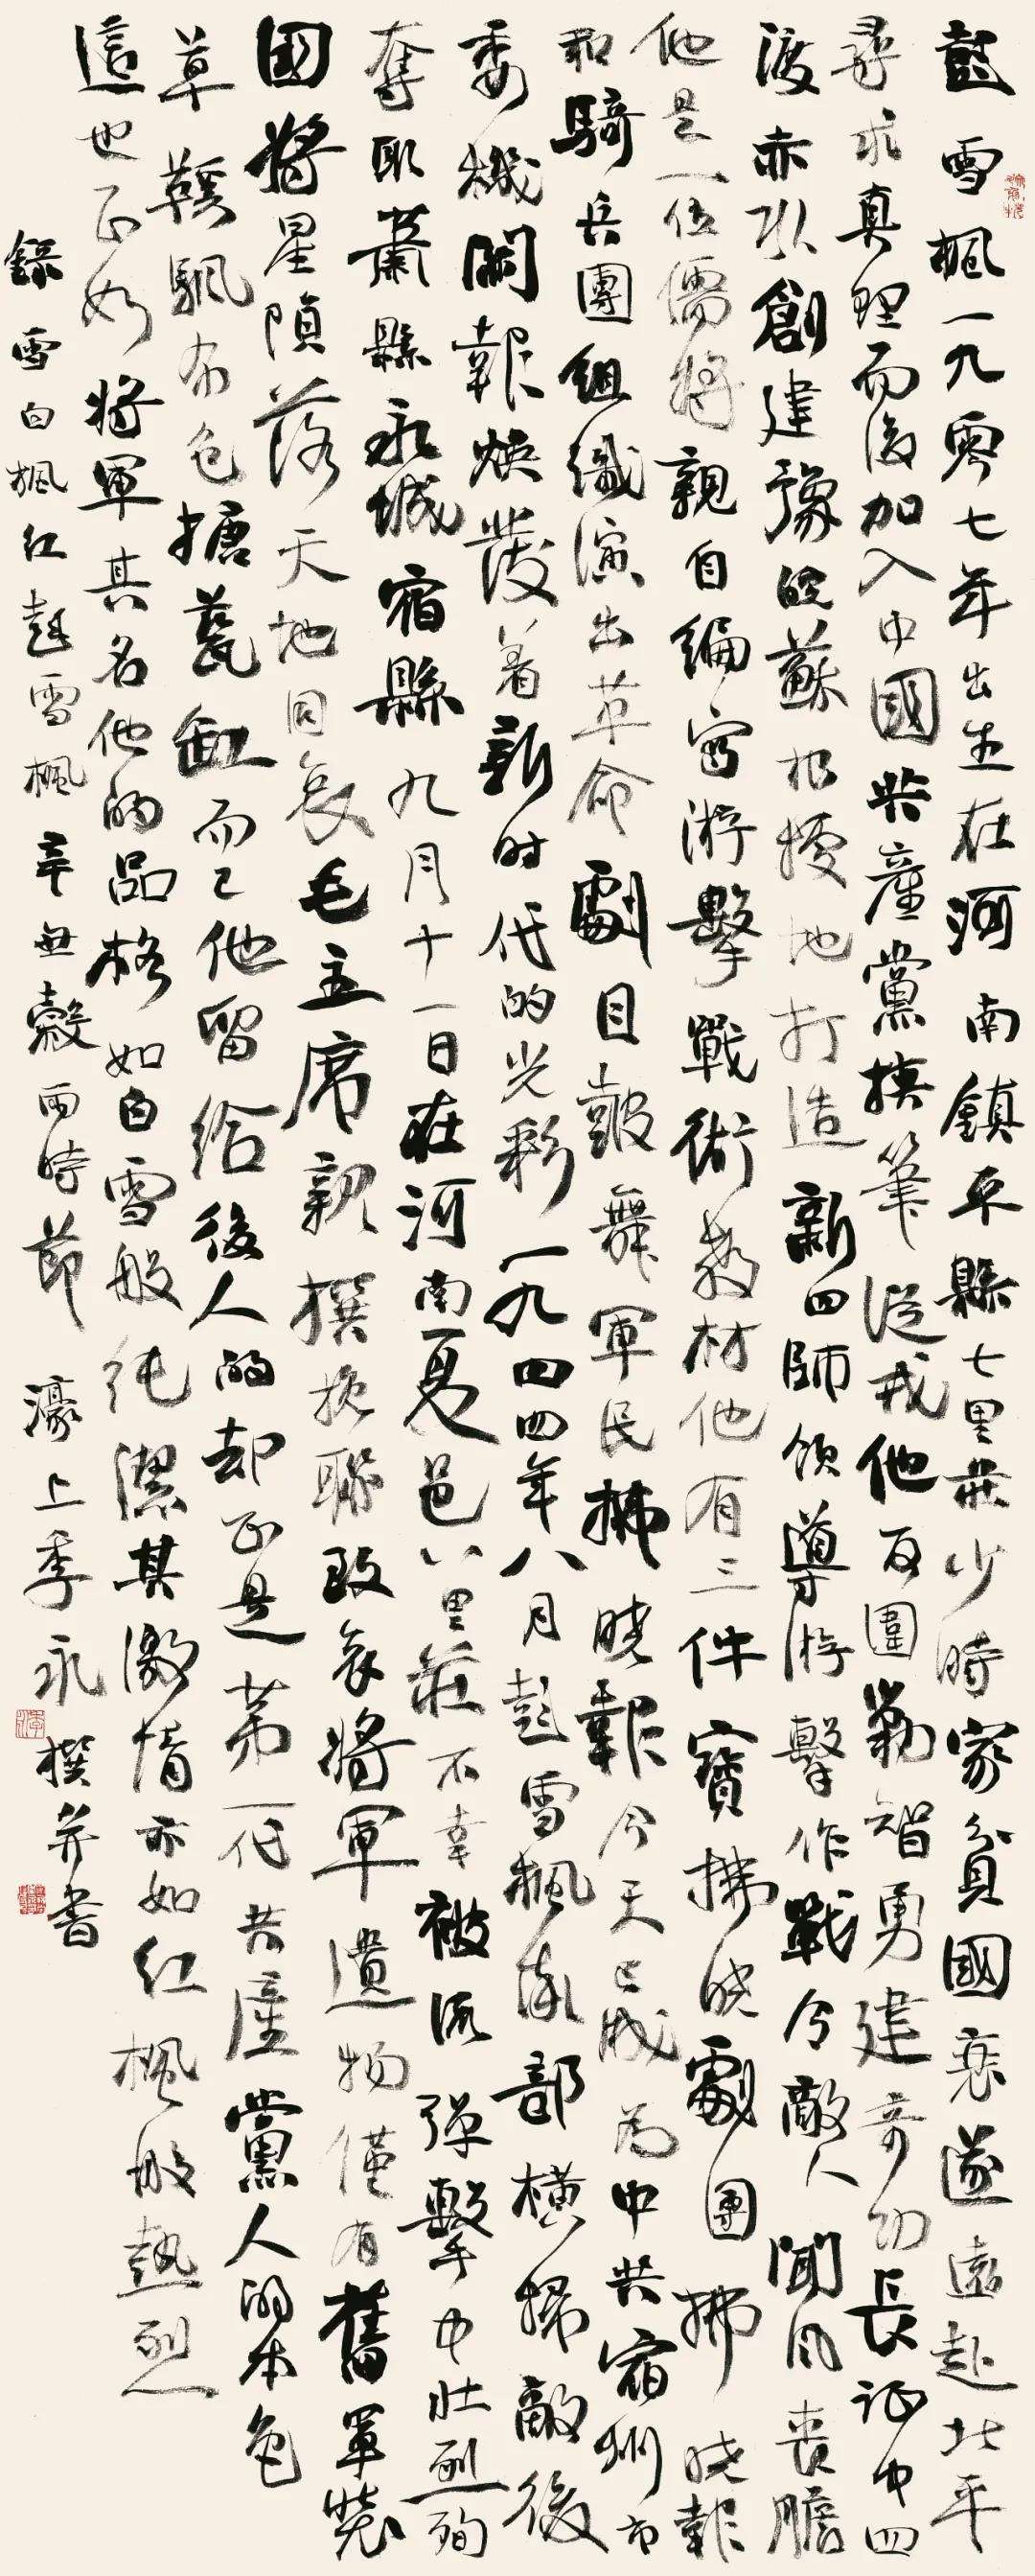 彭雪楓一九零七年出生在河南鎮平縣七里莊少時家貧國衰遂遠赴北平
尋求真理而後加入中國共產黨投筆從戎他反圍剿智勇建奇功長征中四
渡赤水創建豫皖蘇根據地打造新四師領導游擊作戰令敵人聞風喪膽
他是一位儒將親自編寫游擊戰術教材他有三件寶拂曉劇團拂曉報
和騎兵團組織演出革命劇目鼓舞軍民拂曉報今天已成為中共宿州市
委機關報煥發着新时代的光彩一九四四年八月彭雪楓率部橫掃敵後
奪取蕭縣永城宿縣九月十一日在河南夏邑八里莊不幸被流彈擊中壯烈殉
國將星隕落天地同哀毛主席親撰挽聯致哀將軍遺物僅有舊軍裝
草鞋颿布包搪瓷缸而已他留給後人的却正是第一代共產黨人的本色
這也正如將軍其名他的品格如白雪般純潔其激情亦如紅楓般熱烈
錄雪白楓红彭雪楓辛丑穀雨時節濠上季永撰并書